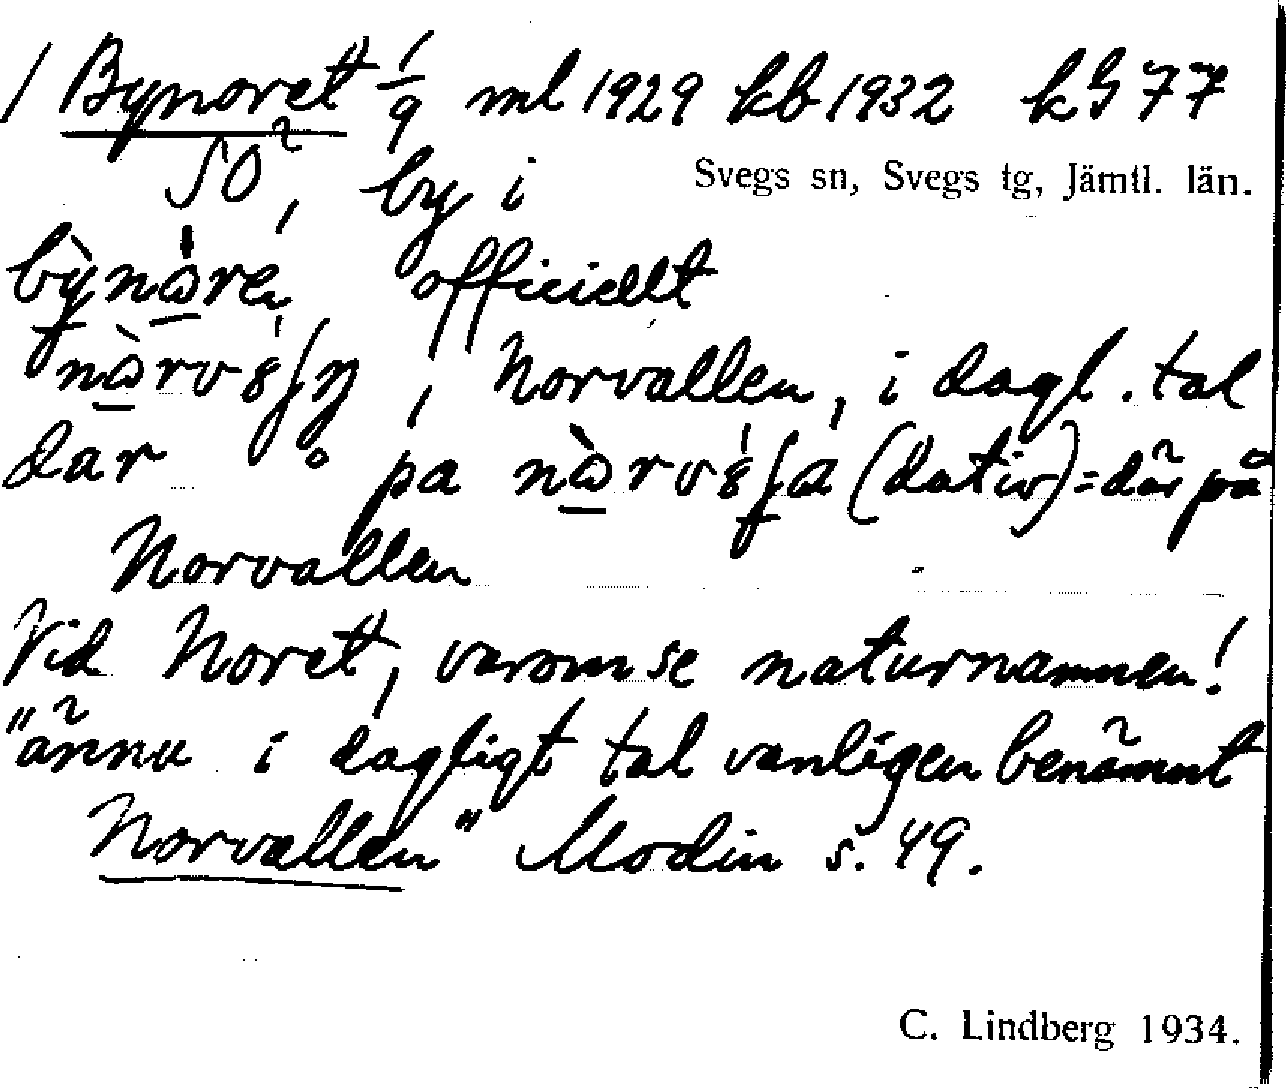 / Bynoret 1/9 ml 1929 kb 1932 kG 77
SO², by i Svegs sn, Svegs tg, Jämtl. län.
officiellt
Norvallen, i dagl. tal
där på (dativ) = där på
Norvallen
Vid Noret, varom se naturnamnen!
"ännu i dagligt tal vanligen benämnt
Norvallen" Modin s. 49.
C. Lindberg 1934.